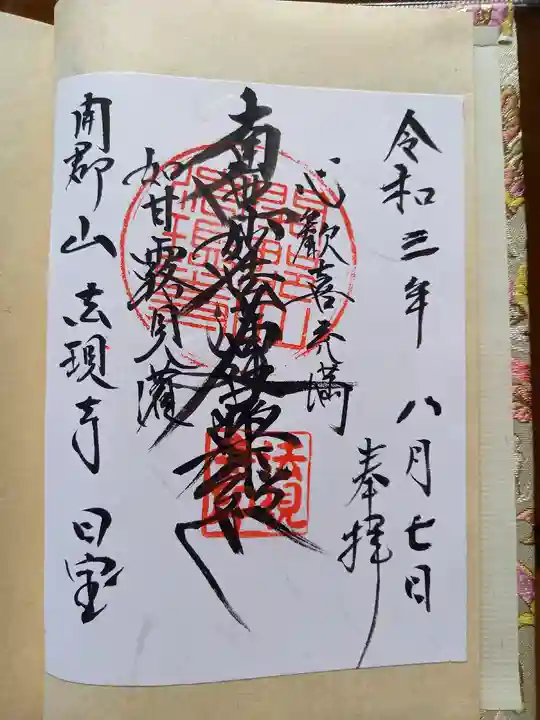 令和三年 八月七日
奉拝
心歓喜充満
南無妙法蓮華経
如甘露見灌
南郡山 法現寺 日宝